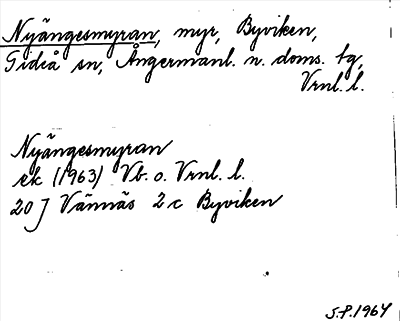 Nyängesmyran, myr, Byviken,
Gideå sn, Ångermanl. n. doms. tg,
Vrnl. l.
Nyängesmyran
ek (1963) Vb. o. Vrnl. l.
20 J Vännäs 2 c Byviken
S.P. 1964